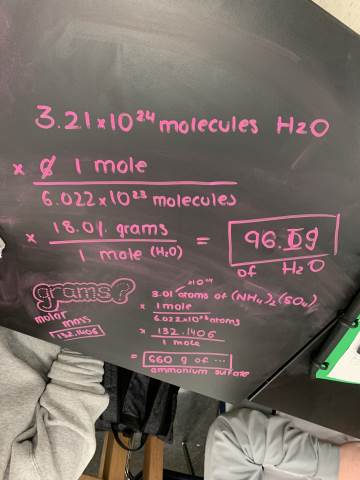 3.21x10²⁴ molecules H₂O
x 1 mole
6.022x10²³ molecules
x 18.01 grams
1 mole (H₂O)
= 96.0g
of H₂O
grams?
molar
mass
132.1406
x10²⁴
3.01 atoms of (NH₄)₂(SO₄)
x 1 mole
6.022x10²³ atoms
x 132.1406
1 mole
= 660 g of ...
ammonium sulfate